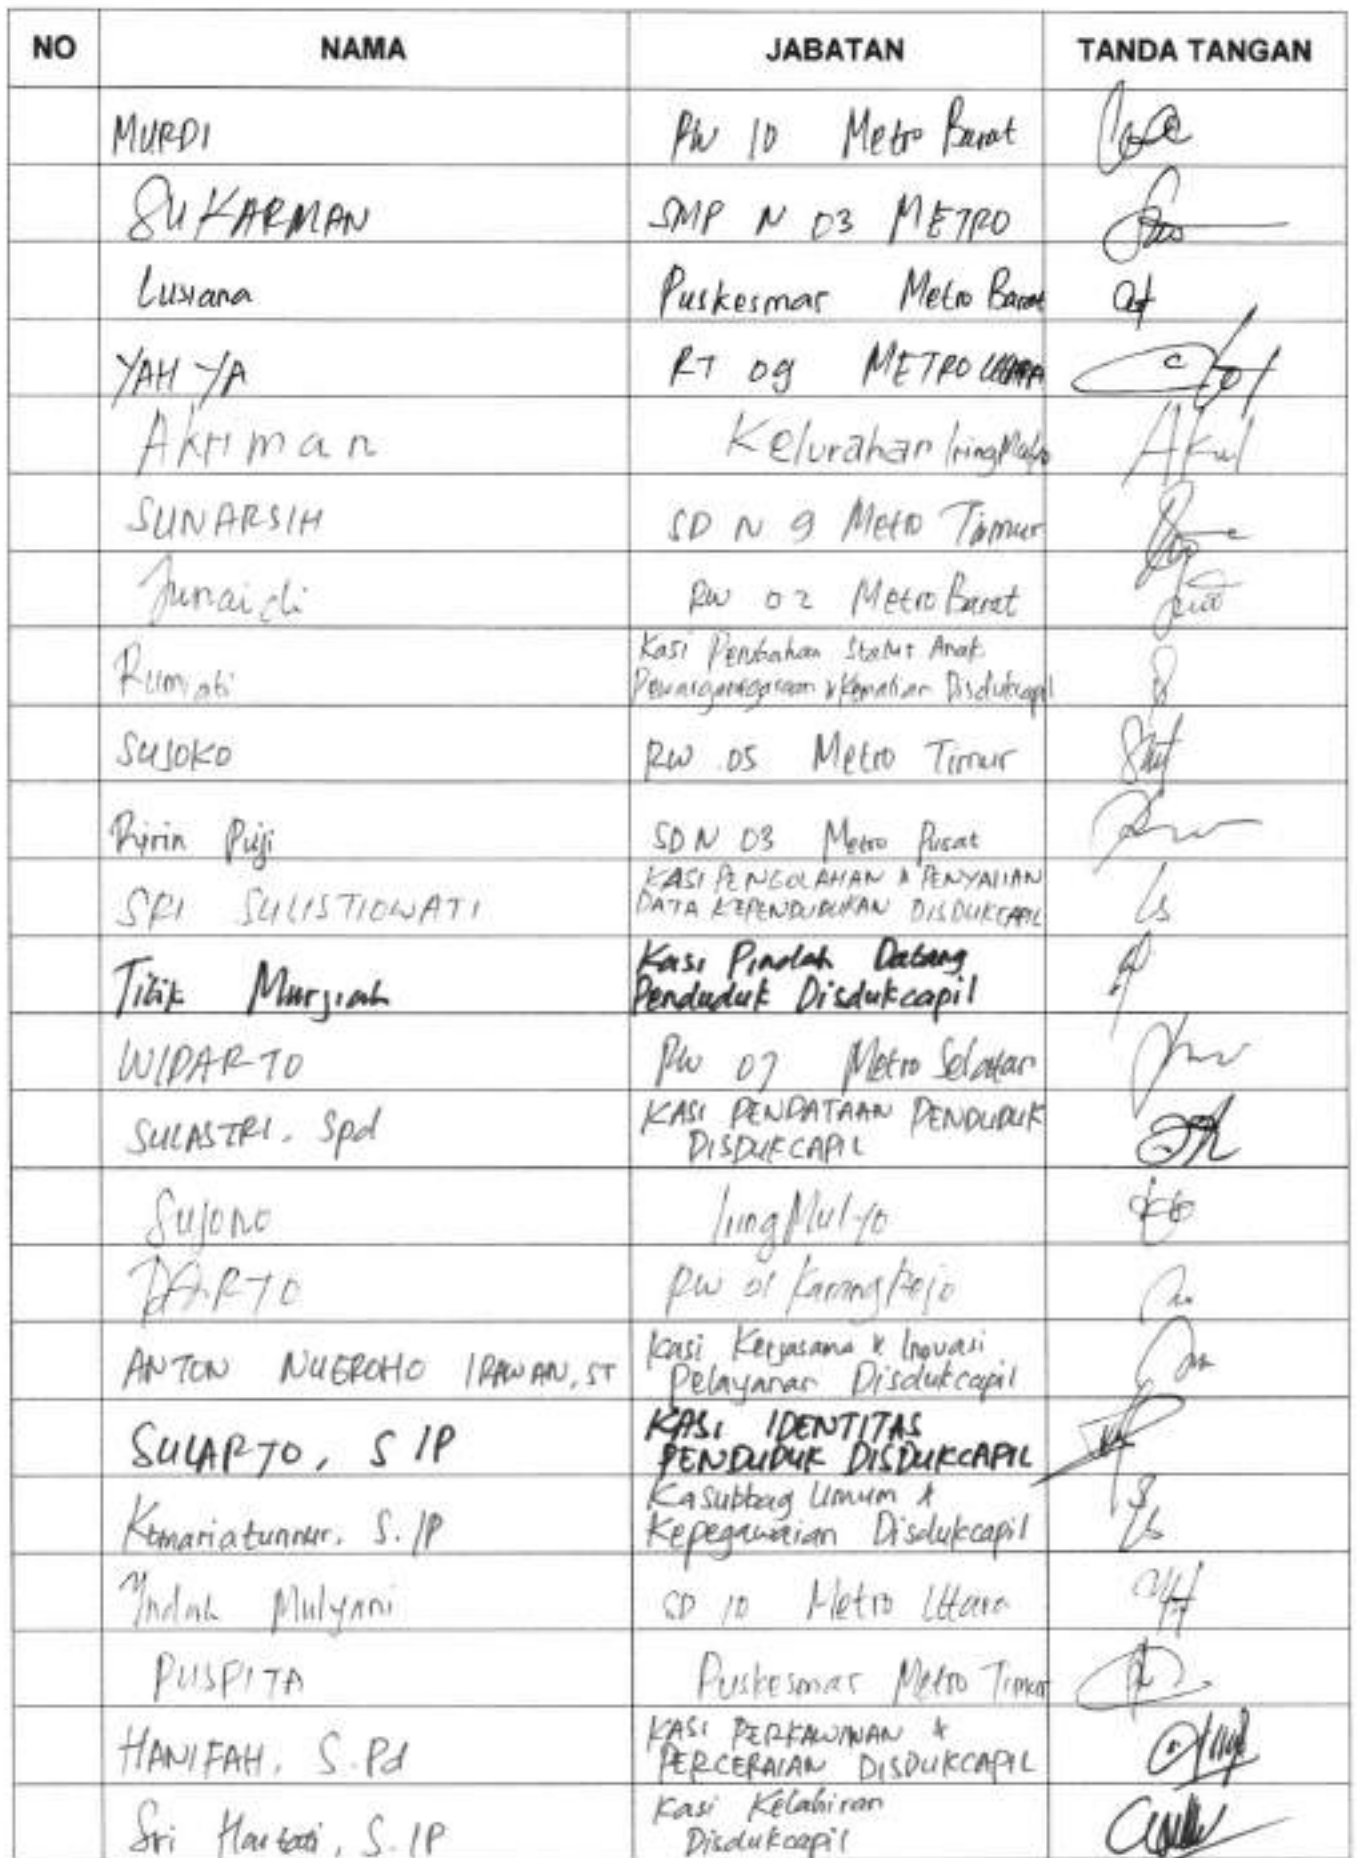 NO NAMA JABATAN TANDA TANGAN
MURDI RW 10 Metro Barat
SUKARMAN SMP N 03 METRO
Lusiana Puskesmas Metro Barat
YAHYA RT 09 METRO UTARA
Akriman Kelurahan IringMulyo
SUNARSIH SD N 9 Metro Timur
Junaidi RW 02 Metro Barat
Rumiati Kasi Perubahan Status Anak
Pewarganegaraan & Kematian Disdukcapil
SUJOKO RW 05 Metro Timur
Ririn Puji SDN 03 Metro Pusat
SRI SULISTIOWATI KASI PENGOLAHAN & PENYAJIAN
DATA KEPENDUDUKAN DISDUKCAPIL
Titik Mursiah Kasi Pindah Datang
Penduduk Disdukcapil
WIDARTO RW 07 Metro Selatan
SULASTRI. Spd KASI PENDATAAN PENDUDUK
DISDUKCAPIL
Sujono Iring Mulyo
DARTO RW 01 Karang Rejo
ANTON NUGROHO IRAWAN, ST Kasi Kerjasama & Inovasi
Pelayanan Disdukcapil
SULARTO, S IP KASI IDENTITAS
PENDUDUK DISDUKCAPIL
Komariatunnur. S. IP Kasubbag Umum &
Kepegawaian Disdukcapil
Indah Mulyani SD 10 Metro Utara
PUSPITA Puskesmas Metro Timur
HANIFAH, S.Pd KASI PERKAWINAN &
PERCERAIAN DISDUKCAPIL
Sri Hartati, S. IP Kasi Kelahiran
Disdukcapil